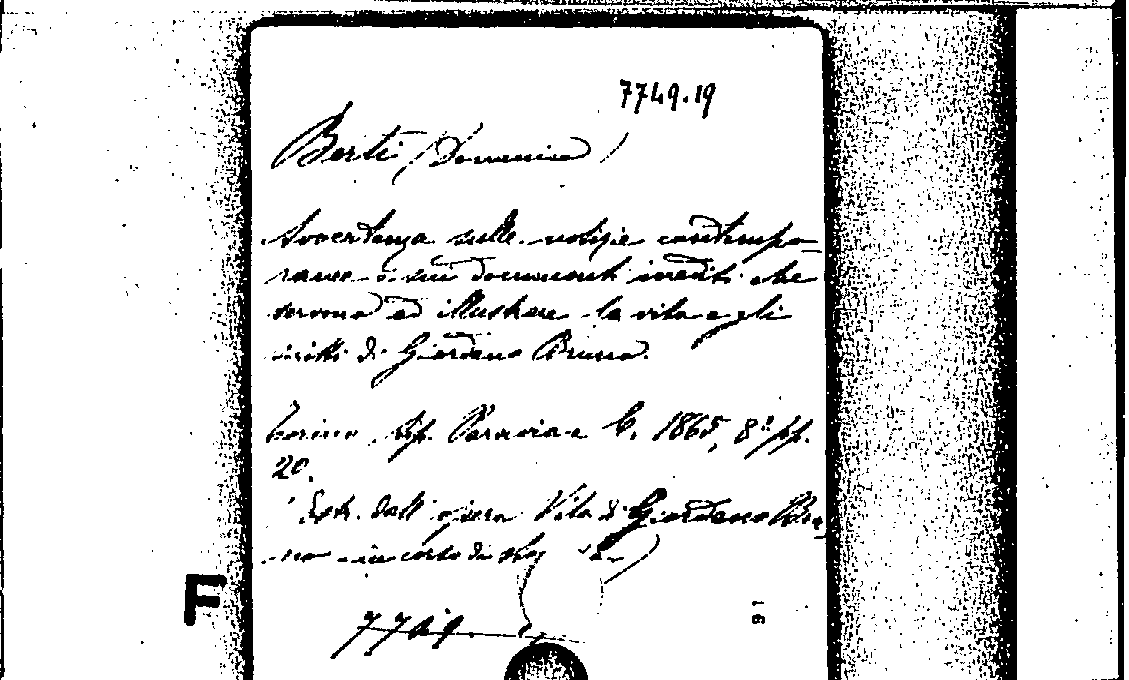 7749.19
Berti (Domenico)
Avvertenza sulle notizie contempo-
ranee e sui documenti inediti che
servono ad illustrare la vita e gli
scritti di Giordano Bruno.
Torino, tip. Paravia e C. 1865, 8° pp.
20.
(Estr. dall'opera Vita di Giordano Bru-
no in corso di)
F
7749.
19